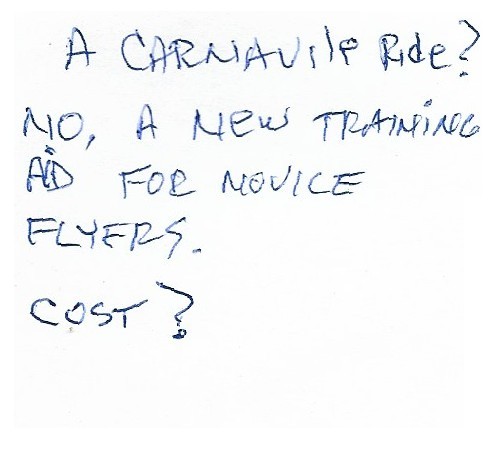 A CARNAVILE RIDE?
NO, A NEW TRAINING
AID FOR NOVICE
FLYERS.
COST?